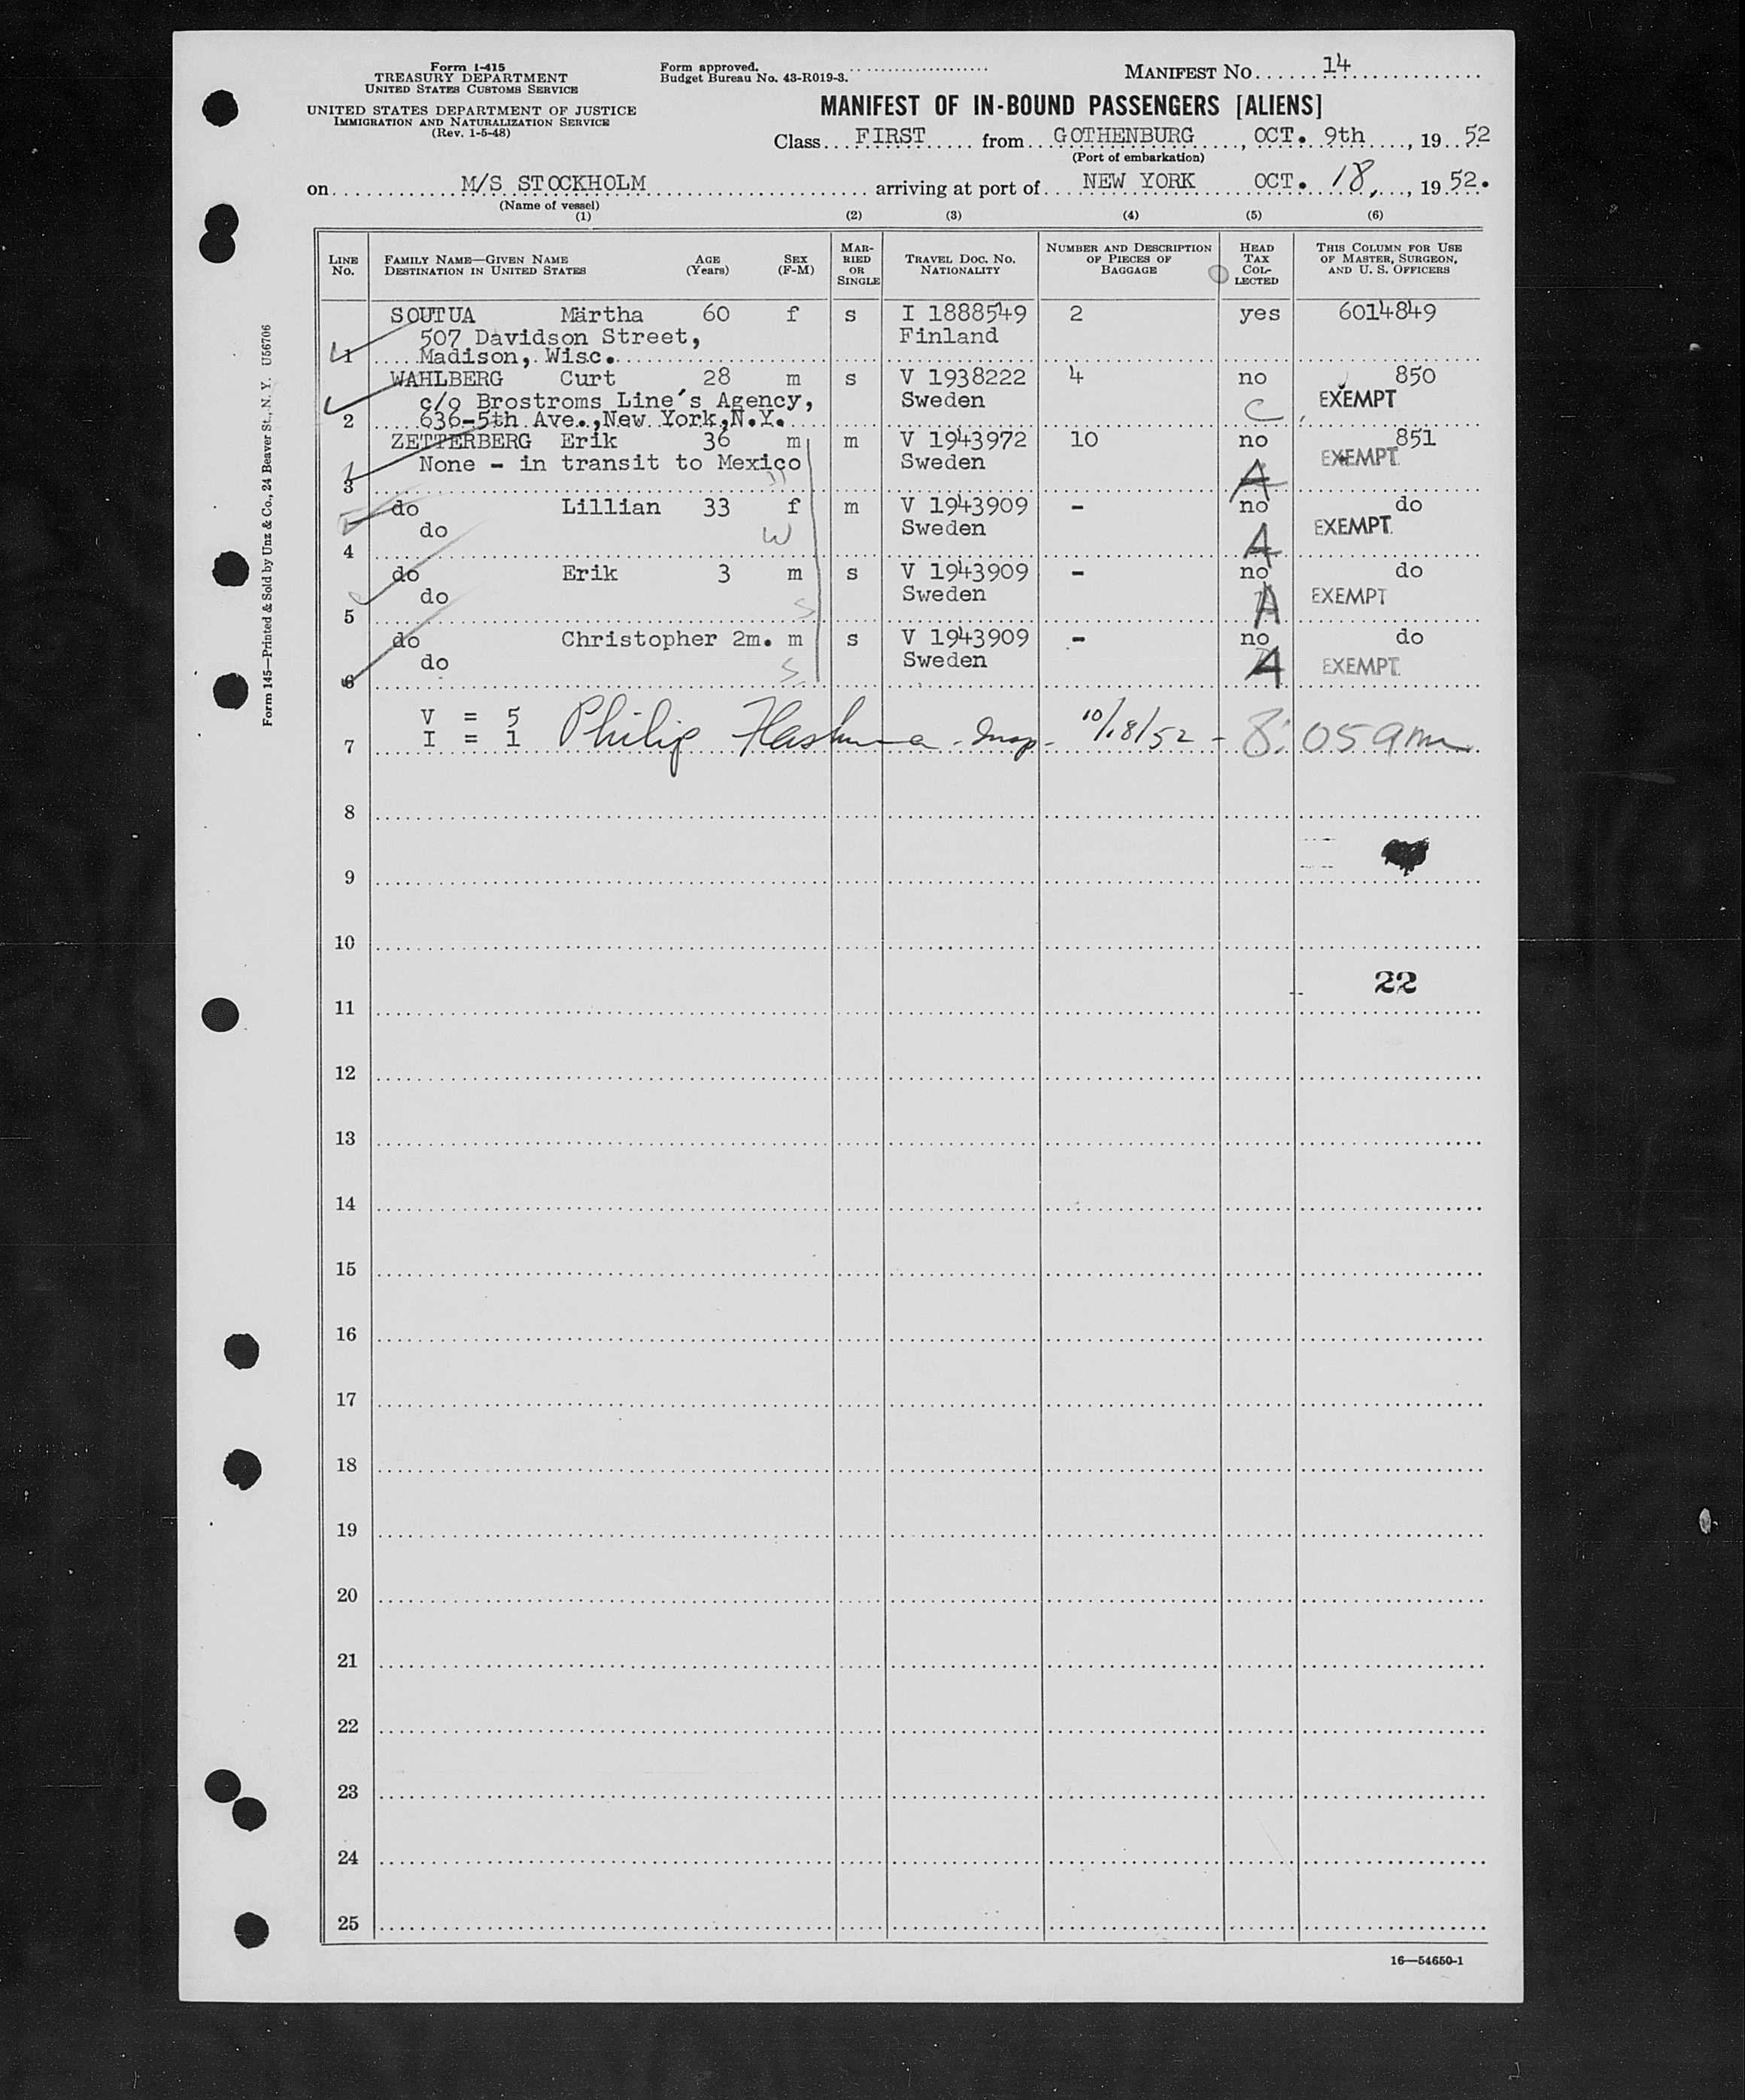 Form I-415
TREASURY DEPARTMENT
UNITED STATES CUSTOMS SERVICE
UNITED STATES DEPARTMENT OF JUSTICE
IMMIGRATION AND NATURALIZATION SERVICE
(Rev. 1-5-48)
Form approved.
Budget Bureau No. 43-R019-3.
MANIFEST NO. 14
MANIFEST OF IN-BOUND PASSENGERS [ALIENS]
Class FIRST from GOTHENBURG, OCT. 9th, 19 52
(Port of embarkation)
on M/S STOCKHOLM arriving at port of NEW YORK OCT. 18, 19 52.
(Name of vessel)
(1) (2) (3) (4) (5) (6)
LINE No. FAMILY NAME—GIVEN NAME DESTINATION IN UNITED STATES AGE (Years) SEX (F-M) MARRIED OR SINGLE TRAVEL DOC. NO. NATIONALITY NUMBER AND DESCRIPTION OF PIECES OF BAGGAGE HEAD TAX COLLECTED THIS COLUMN FOR USE OF MASTER, SURGEON, AND U. S. OFFICERS
SOUTUA Märtha 60 f s I 1888549 2 yes 6014849
507 Davidson Street, Finland
1 Madison, Wisc.
WAHLBERG Curt 28 m s V 1938222 4 no 850
c/o Brostroms Line's Agency, Sweden C EXEMPT
2 636-5th Ave.,New York,N.Y.
ZETTERBERG Erik 36 m m V 1943972 10 no 851
None - in transit to Mexico Sweden A EXEMPT
3
do Lillian 33 f m V 1943909 - no do
do W Sweden A EXEMPT
4
do Erik 3 m s V 1943909 - no do
do S Sweden A EXEMPT
5
do Christopher 2m. m s V 1943909 - no do
do S Sweden A EXEMPT
6
V = 5
7 I = 1 Philip Insp - 10/18/52 - 8:05 am
8
9
10
22
11
12
13
14
15
16
17
18
19
20
21
22
23
24
25
16—54650-1
Form 145—Printed & Sold by Unz & Co., 24 Beaver St., N. Y. U56706